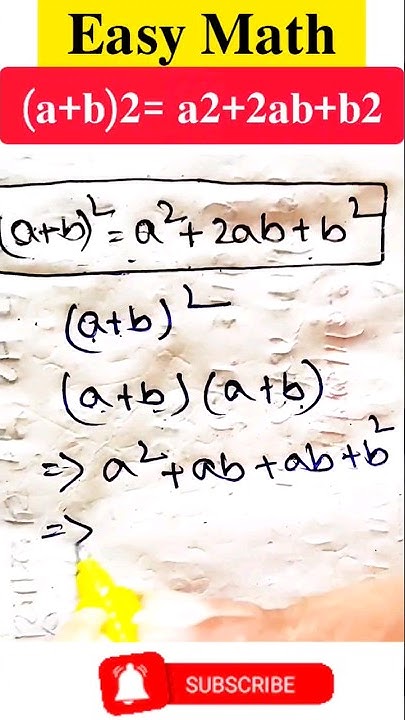 Easy Math
(a+b)2= a2+2ab+b2
(a+b)² = a² + 2ab + b²
(a+b)²
(a+b) (a+b)
=> a² + ab + ab + b²
=>
SUBSCRIBE